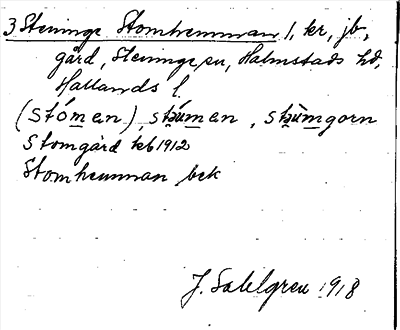 3 Steninge Stomhemman 1, kr, jb,
gård, Steninge sn, Halmstads hd,
Hallands l.
(stómen), stúmen, stùmgorn
Stomgård kb 1912
Stomhemman bek
J. Sahlgren 1918